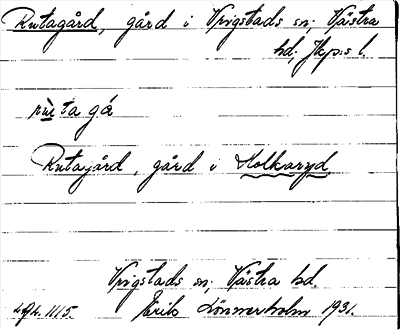 Rutagård, gård i Vrigstads sn. Västra
hd, Jkp:s l.
rùta gá
Rutagård, gård i Holkaryd
Vrigstads sn, Västra hd.
Erik Lönnerholm 1931.